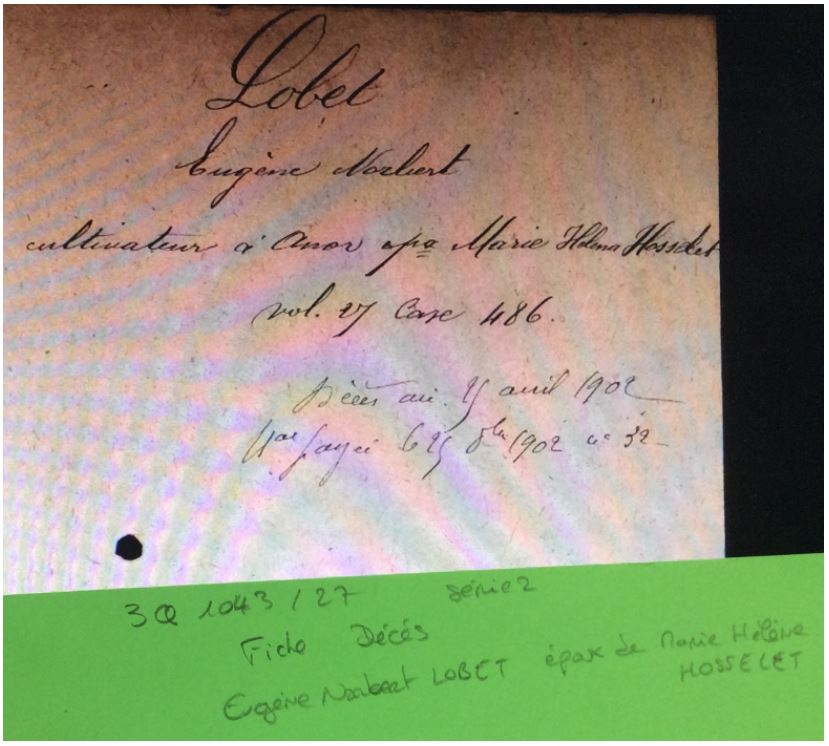 Lobet
Eugène Norbert
cultivateur à Anor époa Marie Héléna Hosselet
vol. 27 Case 486.
Décès du 25 avril 1902
payé le 25 8bre 1902 n° 32
3Q 1043 / 27 Série 2
Fiche Décés
Eugène Norbert LOBET époux de Marie Hélène
HOSSELET